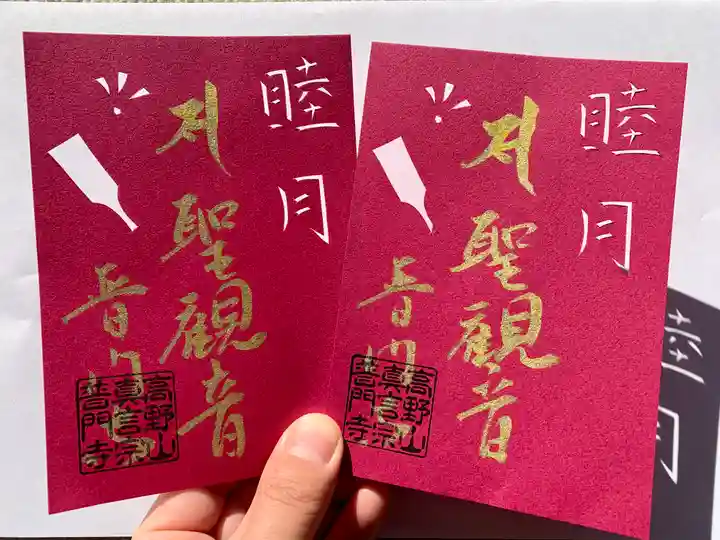 睦月
聖觀音
普門寺
高野山
真言宗
普門寺
睦月
聖觀音
普門寺
高野山
真言宗
普門寺
睦月